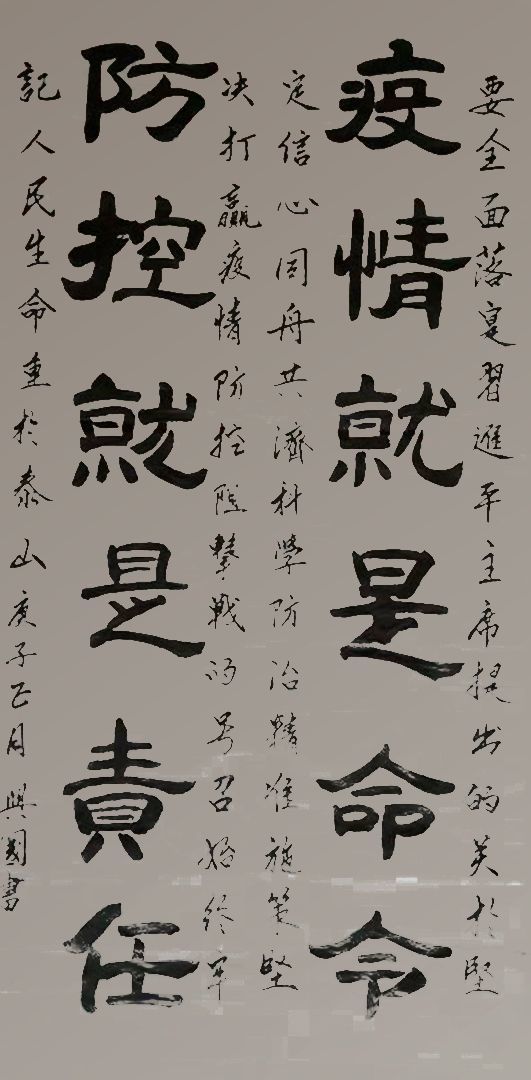 疫情就是命令
防控就是責任
要全面落寔習進平主席提出的关於堅
定信心同舟共濟科學防治精准施策堅
决打贏疫情防控阻擊戰的号召始终牢
記人民生命重於泰山庚子正月興國書